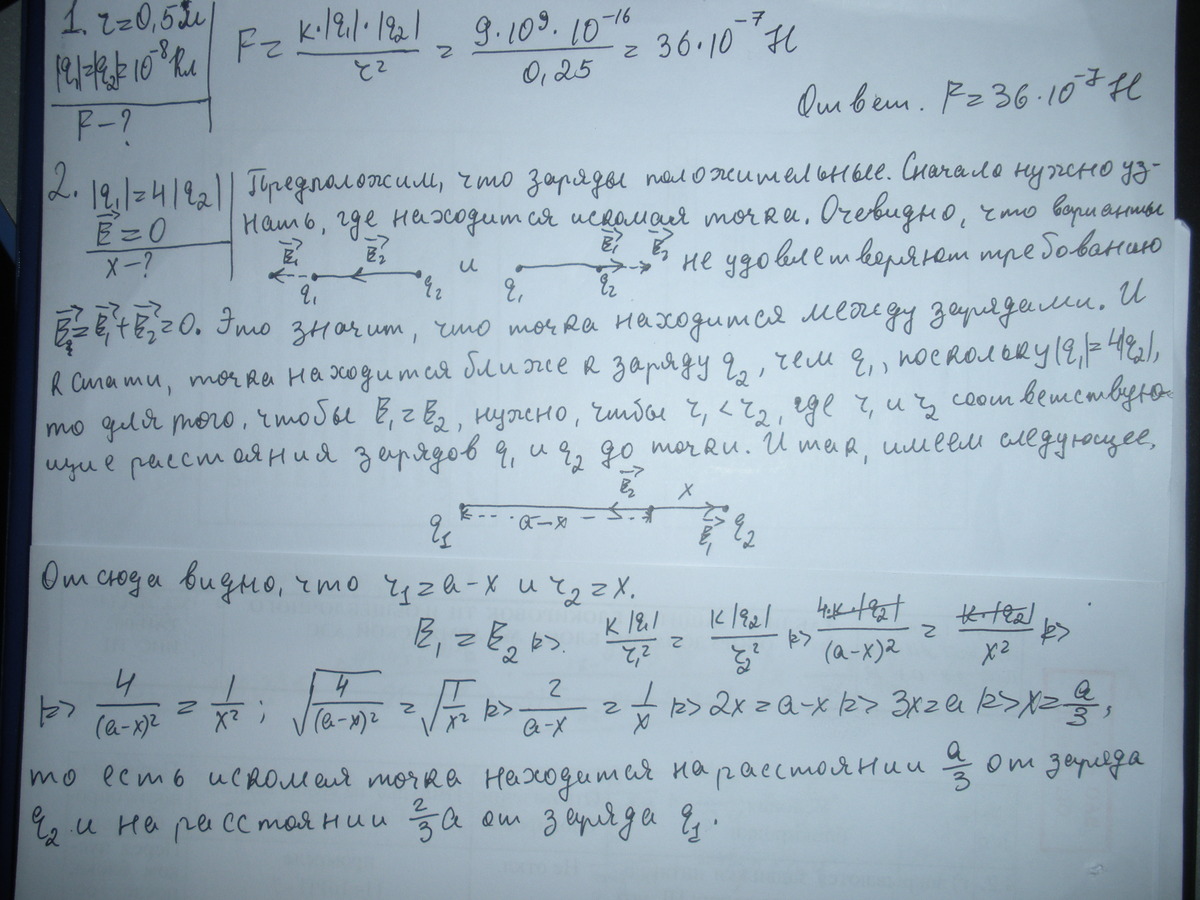 1. r=0,5м
|q₁|=|q₂|=10⁻⁸Кл
F-?
F = k·|q₁|·|q₂| / r² = 9·10⁹·10⁻¹⁶ / 0,25 = 36·10⁻⁷ Н
Ответ. F=36·10⁻⁷ Н
2. |q₁|=4|q₂|
E⃗=0
x-?
Предположим, что заряды положительные. Сначало нужно уз-
нать, где находится искомая точка. Очевидно, что варианты
E⃗₁ E⃗₂ q₁ q₂ и E⃗₁ E⃗₂ q₁ q₂ не удовлетворяют требованию
E⃗=E⃗₁+E⃗₂=0. Это значит, что точка находится между зарядами. И
кстати, точка находится ближе к заряду q₂, чем q₁, поскольку |q₁|=4|q₂|,
то для того, чтобы E₁=E₂, нужно, чтбы r₁<r₂, где r₁ и r₂ соответствую-
щие расстаяния зарядов q₁ и q₂ до точки. И так, имеем следующее,
E⃗₂ x
q₁ a-x E⃗₁ q₂
Отсюда видно, что r₁=a-x и r₂=x.
E₁=E₂ => k|q₁| / r₁² = k|q₂| / r₂² => 4·k·|q₂| / (a-x)² = k·|q₂| / x² =>
=> 4 / (a-x)² = 1 / x² ; √(4 / (a-x)²) = √(1 / x²) => 2 / (a-x) = 1 / x => 2x=a-x => 3x=a => x=a/3,
то есть искомая точка находится на расстоянии a/3 от заряда
q₂ и на расстоянии 2/3a от заряда q₁.